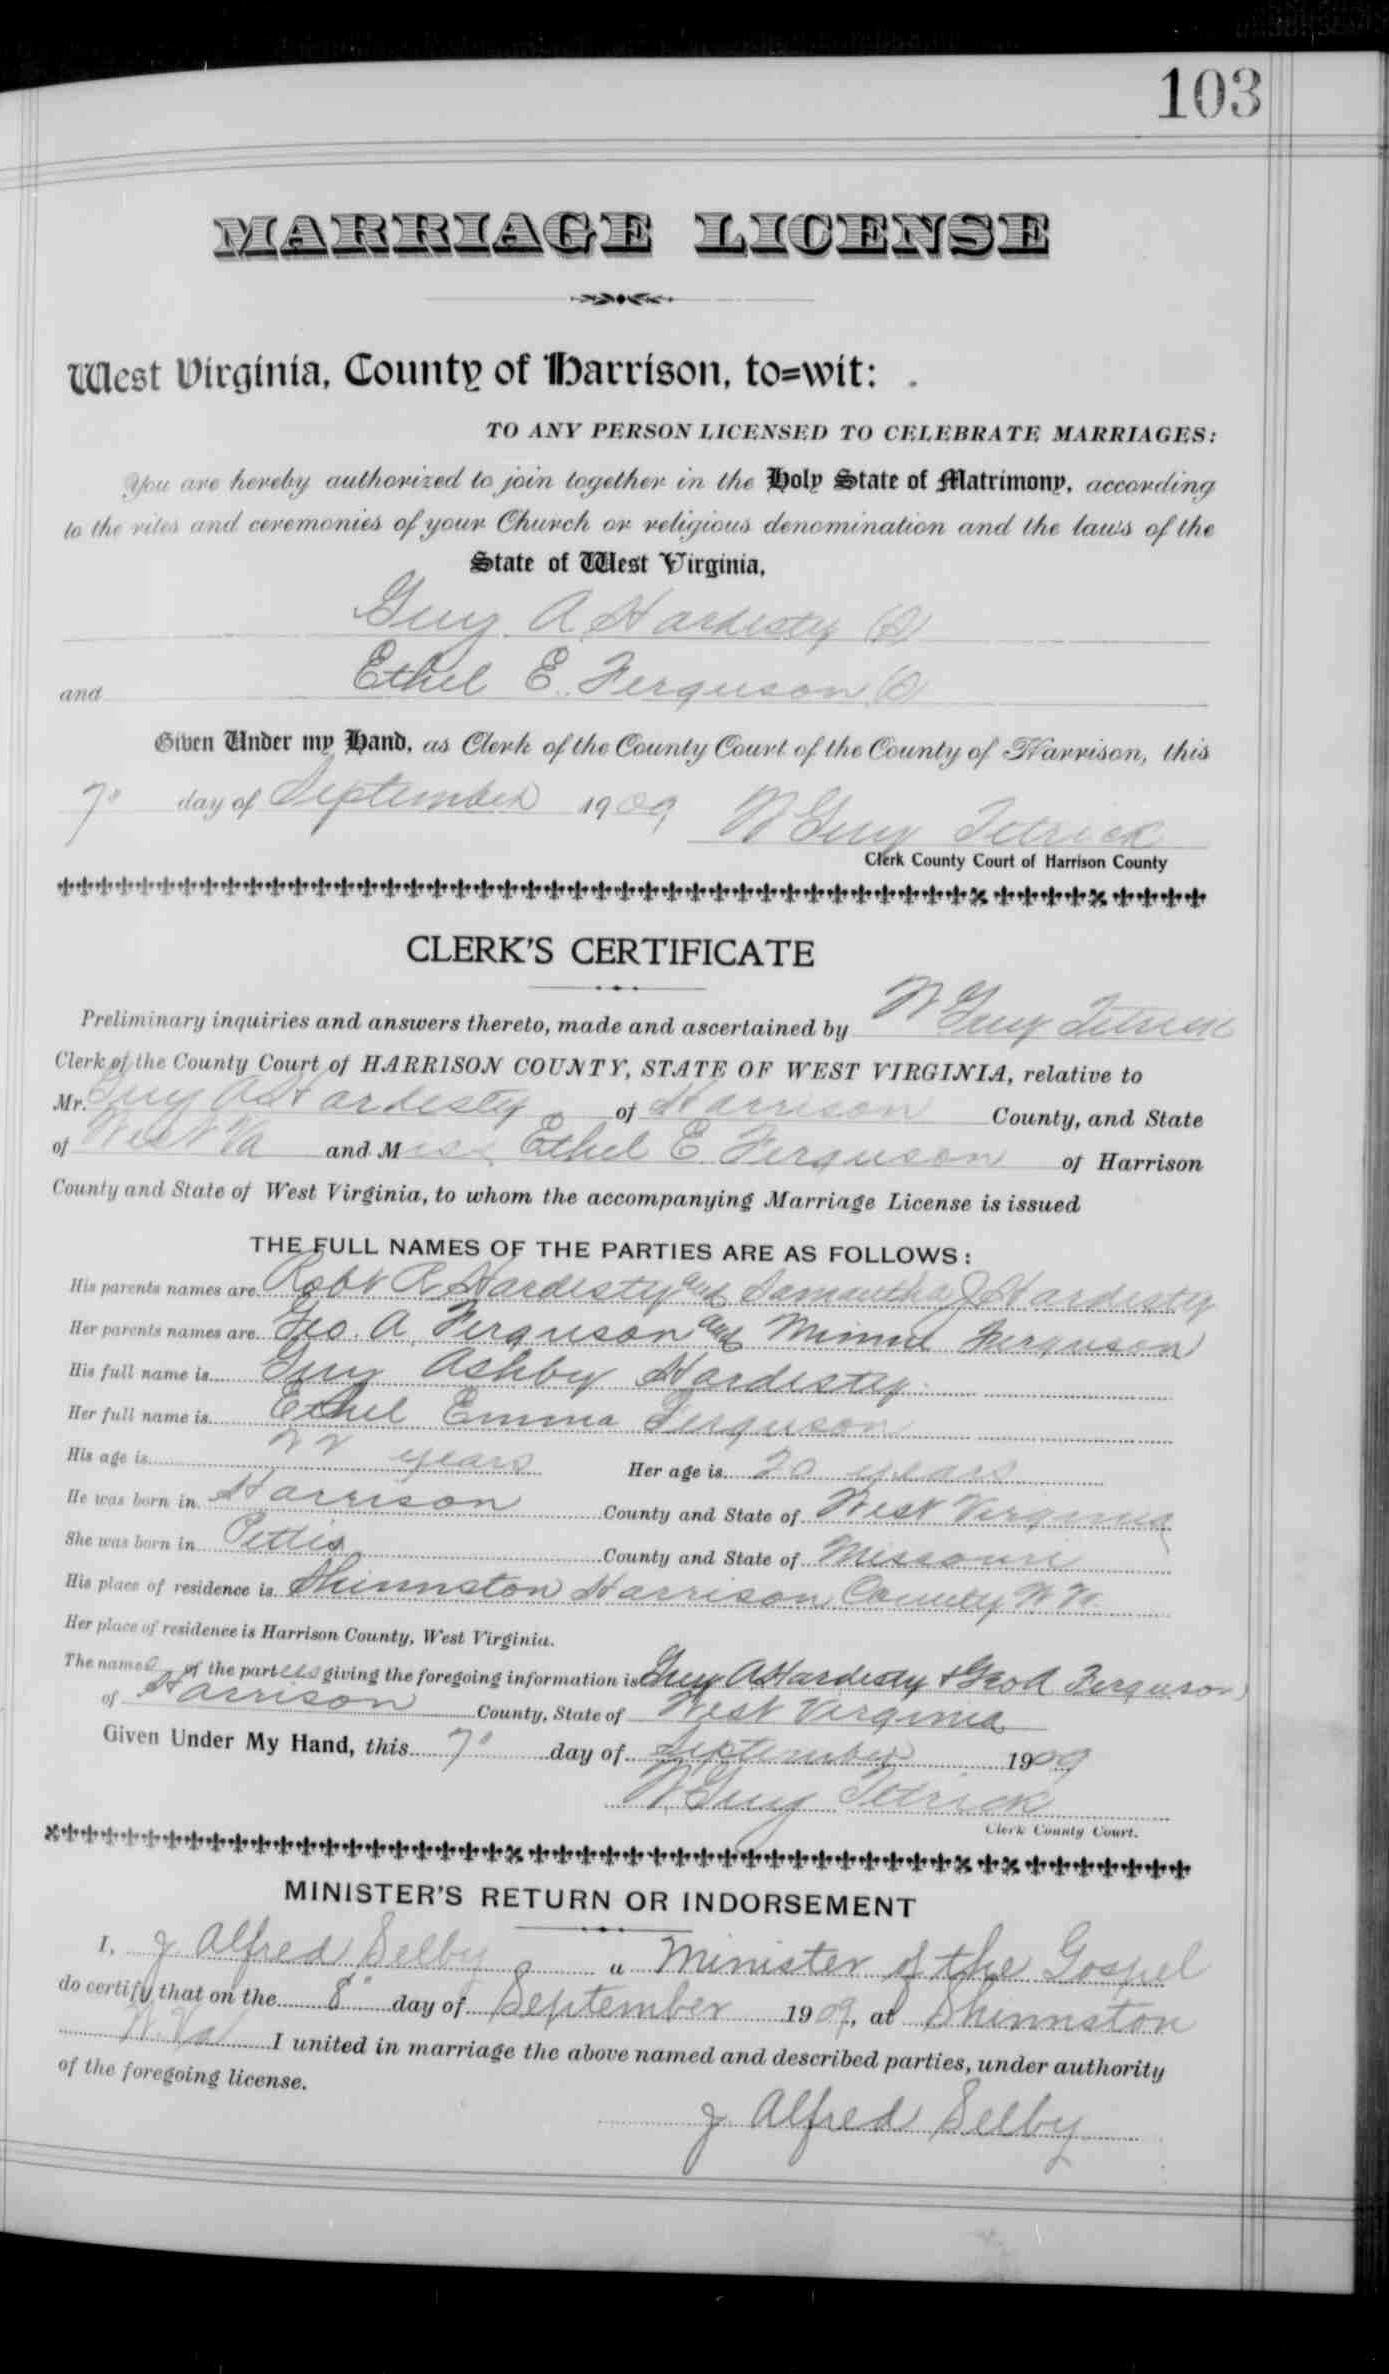 103
MARRIAGE LICENSE
West Virginia, County of Harrison, to=wit:
TO ANY PERSON LICENSED TO CELEBRATE MARRIAGES:
You are hereby authorized to join together in the Holy State of Matrimony, according
to the rites and ceremonies of your Church or religious denomination and the laws of the
State of West Virginia,
Guy A Hardesty
and Ethel E. Ferguson
Given Under my Hand, as Clerk of the County Court of the County of Harrison, this
7" day of September 1909 W Guy Tetrick
Clerk County Court of Harrison County
CLERK'S CERTIFICATE
Preliminary inquiries and answers thereto, made and ascertained by W Guy Tetrick
Clerk of the County Court of HARRISON COUNTY, STATE OF WEST VIRGINIA, relative to
Mr. Guy A Hardesty of Harrison County, and State
of West Va and Miss Ethel E Ferguson of Harrison
County and State of West Virginia, to whom the accompanying Marriage License is issued
THE FULL NAMES OF THE PARTIES ARE AS FOLLOWS:
His parents names are Robt R Hardesty and Samantha J Hardesty
Her parents names are Geo. A Ferguson and Minnie Ferguson
His full name is Guy Ashby Hardesty
Her full name is Ethel Emma Ferguson
His age is 22 years Her age is 20 years
He was born in Harrison County and State of West Virginia
She was born in Pettis County and State of Missouri
His place of residence is Shinnston Harrison County W Va.
Her place of residence is Harrison County, West Virginia.
The names of the parties giving the foregoing information is Guy A Hardesty & Geo A Ferguson
of Harrison County, State of West Virginia
Given Under My Hand, this 7" day of September 1909
W Guy Tetrick
Clerk County Court.
MINISTER'S RETURN OR INDORSEMENT
I, J Alfred Selby a Minister of the Gospel
do certify that on the 8" day of September 1909, at Shinnston
W. Va I united in marriage the above named and described parties, under authority
of the foregoing license.
J Alfred Selby